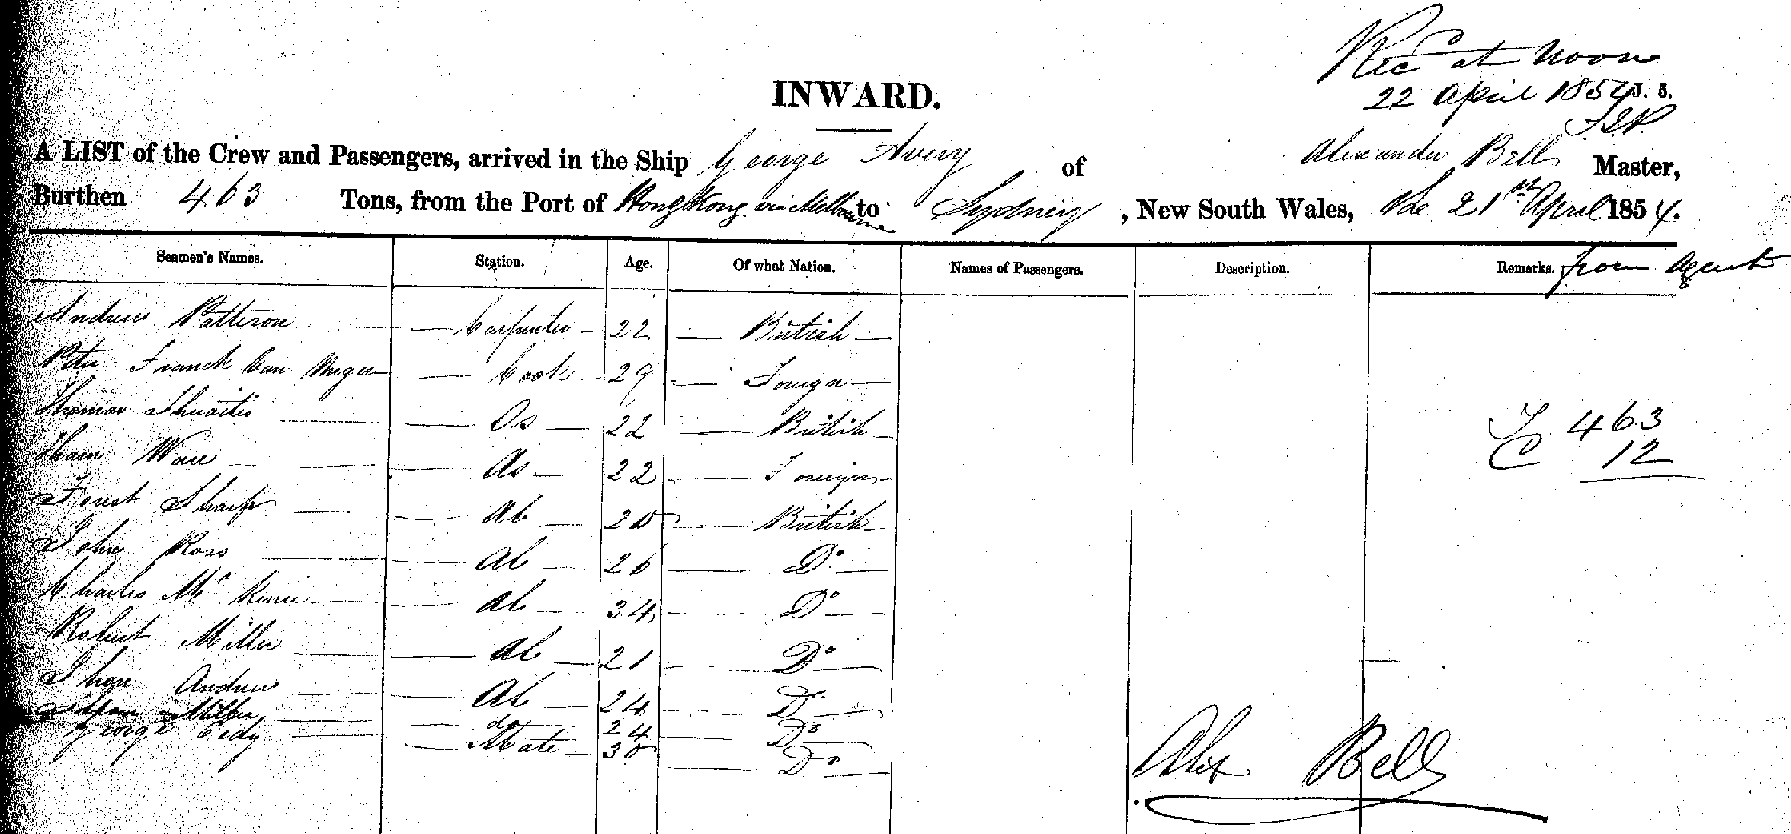 Rec at noon
22 April 1854
INWARD.
A LIST of the Crew and Passengers, arrived in the Ship George Avery of Alexander Bell Master,
Burthen 463 Tons, from the Port of Hong Kong via Melbourne to Sydney, New South Wales, 21st April 1854.
Seamen's Names. Station. Age. Of what Nation. Names of Passengers. Description. Remarks. from Agent
Andrew Patterson Carpenter 22 British
Peter Franck Cook 29
Thomas Os 22 British
Ware As 22
Sharp Ab 20 British
John Ross Ab 26 Do
Charles Mc Ab 34 Do
Robert Miller Ab 21 Do
Andrew Ab 24 Do
Miller do 24 Do
George Mate 30 Do
T 463
C 12
Alex Bell